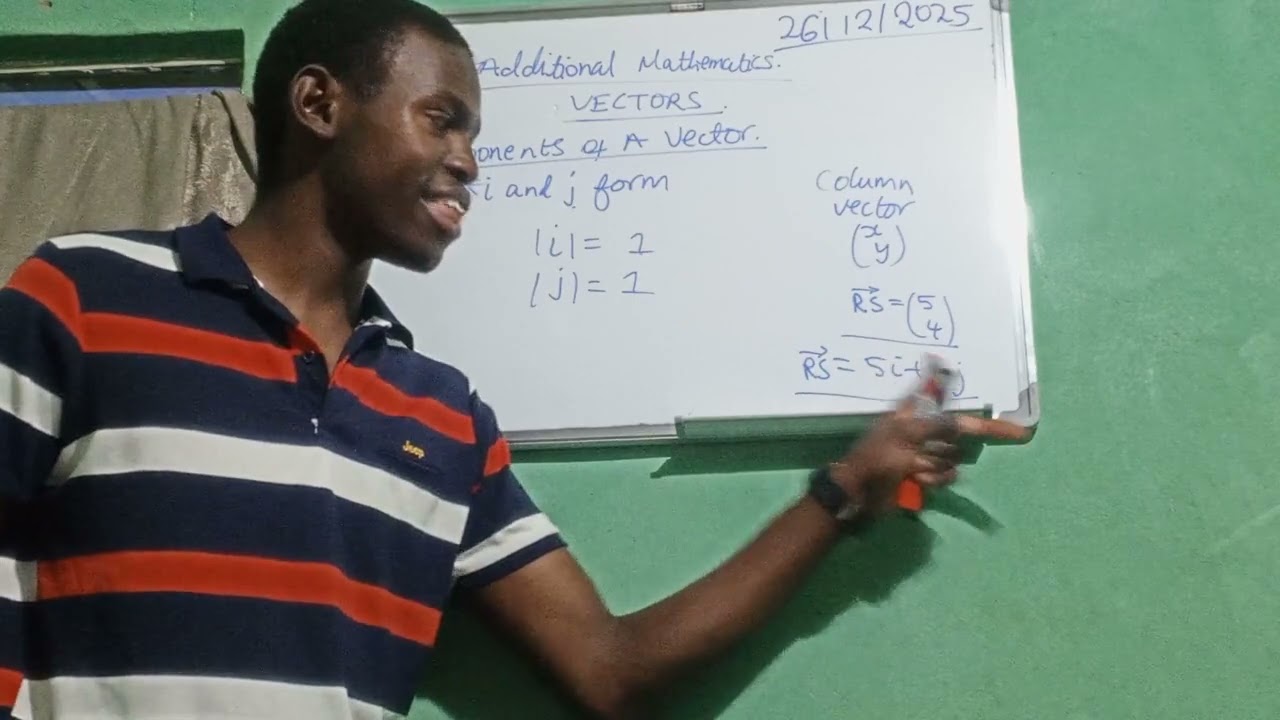 26/12/2025
Additional Mathematics.
VECTORS.
onents of A Vector.
i and j form
|i| = 1
|j| = 1
Column
vector
(x
y)
RS = (5
4)
RS = 5i+ j
Jeep